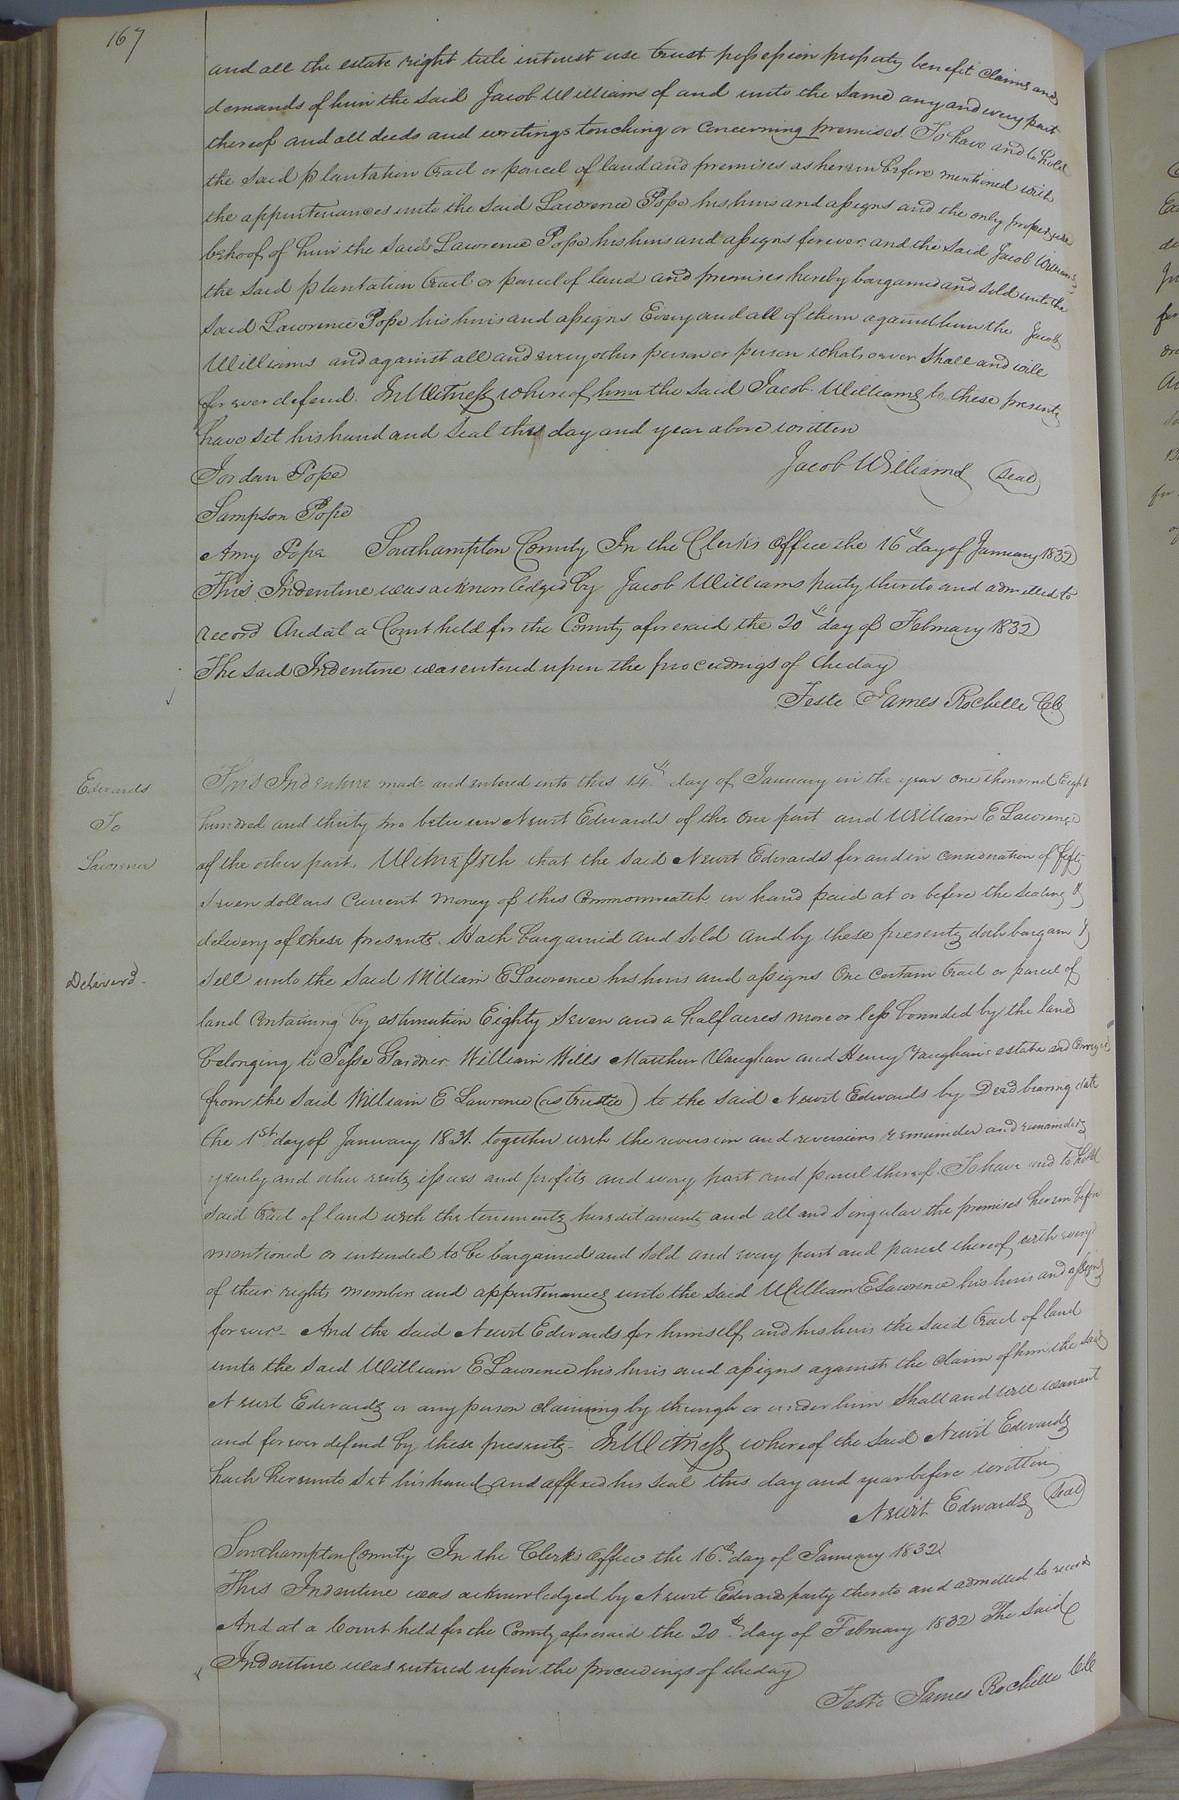 167
and all the estate right title interest use trust possession property benefit claims and
demands of him the said Jacob Williams of and unto the same any and every part
thereof and all deeds and writings touching or concerning premises. To have and to hold
the said plantation tract or parcel of land and premises as herein before mentioned with
the appurtenances unto the said Lawrence Pope his heirs and assigns and the only proper use
behoof of him the said Lawrence Pope his heirs and assigns forever and the said Jacob Williams
the said plantation tract or parcel of land and premises hereby bargained and sold unto the
said Lawrence Pope his heirs and assigns Every and all of them against him the Jacob
Williams and against all and every other person or person whatsoever Shall and will
forever defend. In Witness whereof him the said Jacob Williams to these presents
have set his hand and seal this day and year above written
Jordan Pope Jacob Williams (Seal)
Sampson Pope
Amy Pope Southampton County In the Clerk's Office the 16th day of January 1832
This Indenture was acknowledged by Jacob Williams party thereto and admitted to
record And at a Court held for the County aforesaid the 20th day of February 1832
The said Indenture was entered upon the proceedings of the day
Teste James Rochelle CC
Edwards
To
Lawrence
Delivered
This Indenture made and entered into this 14th day of January in the year one thousand Eight
hundred and thirty two between Newit Edwards of the one part and William E Lawrence
of the other part. Witnesseth that the said Newit Edwards for and in consideration of fifty
seven dollars Current money of this Commonwealth in hand paid at or before the sealing &
delivery of these presents. Hath bargained and sold and by these presents doth bargain &
sell unto the said William E Lawrence his heirs and assigns One certain tract or parcel of
land containing by estimation Eighty Seven and a half acres more or less bounded by the land
belonging to Jesse Gardner William Wills Matthew Vaughan and Henry Vaughan's estate and conveyed
from the said William E Lawrence (as trustee) to the said Newit Edwards by Deed bearing date
the 1st day of January 1831. together with the reversion and reversions remainder and remainders
yearly and other rents issues and profits and every part and parcel thereof. To have and to hold
said tract of land with the tenements hereditaments and all and singular the premises herein before
mentioned or intended to be bargained and sold and every part and parcel thereof with every
of their rights members and appurtenances unto the said William E Lawrence his heirs and assigns
forever - And the said Newit Edwards for himself and his heirs the said tract of land
unto the said William E Lawrence his heirs and assigns against the claim of him the said
Newit Edwards or any person claiming by through or under him Shall and will warrant
and forever defend by these presents - In Witness whereof the said Newit Edwards
hath hereunto set his hand and affixed his seal this day and year before written
Newit Edwards (Seal)
Southampton County In the Clerk's Office the 16th day of January 1832
This Indenture was acknowledged by Newit Edward party thereto and admitted to record
And at a Court held for the County aforesaid the 20th day of February 1832 The said
Indenture was entered upon the proceedings of the day
Teste James Rochelle CC